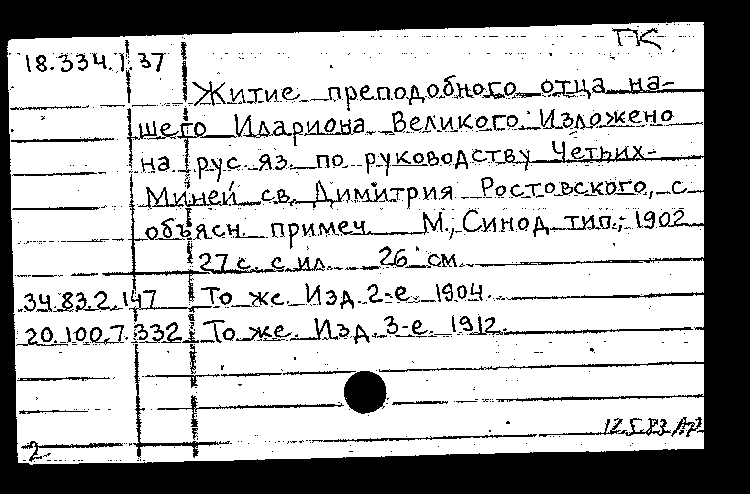 ГК
18.334.1.37
Житие преподобного отца на-
шего Илариона Великого. Изложено
на рус. яз. по руководству Четьих-
Миней св. Димитрия Ростовского, с
объясн. примеч. М., Синод. тип., 1902
27 с. с ил. 26 см.
34.83.2.147 То же. Изд. 2-е. 1904.
20.100.7.332 То же. Изд. 3-е. 1912.
12.5.83
2